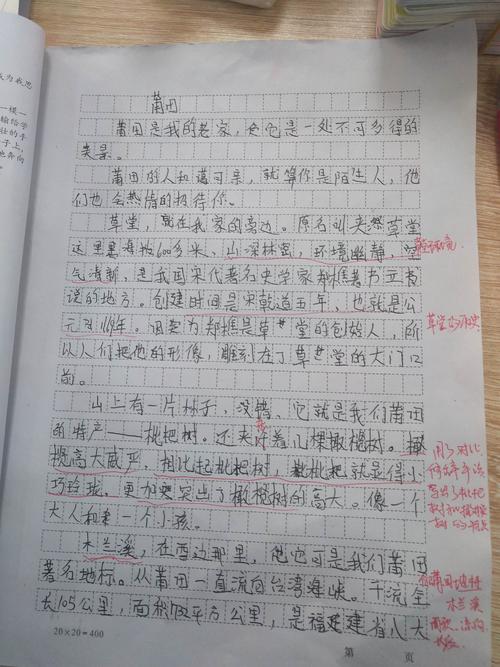 莆田
莆田是我的老家,它也是一处不可多得的
美景。
莆田的人和蔼可亲,就算你是陌生人,他
们也会热情的招待你。
草堂,就在我家的旁边。原名叫夹漈草堂
这里海拔600多米,山深林密,环境幽静,空
气清新,是我国宋代著名史学家郑樵著书立
说的地方。创建时间是宋乾道五年,也就是公
元1169年。因为郑樵是草堂的创始人,所
以人们把他的形像,雕刻在了草堂的大门口
前。
山上有一片林子,没错,它就是我们莆田
的特产——枇杷树。还夹着几棵橄榄树。橄
榄高大威严,相比起枇杷树,枇杷就是得小
巧玲珑,更加突出了橄榄树的高大。像一个
大人和一个小孩。
木兰溪,在西边那里,他可是我们莆田
著名地标。从莆田一直流向台湾海峡。干流全
长105公里,面积 平方公里,是福建省八大
20×20=400
第 页
环境
草堂的
用了对比
写出了枇杷
树和橄榄
树的特点
木兰溪